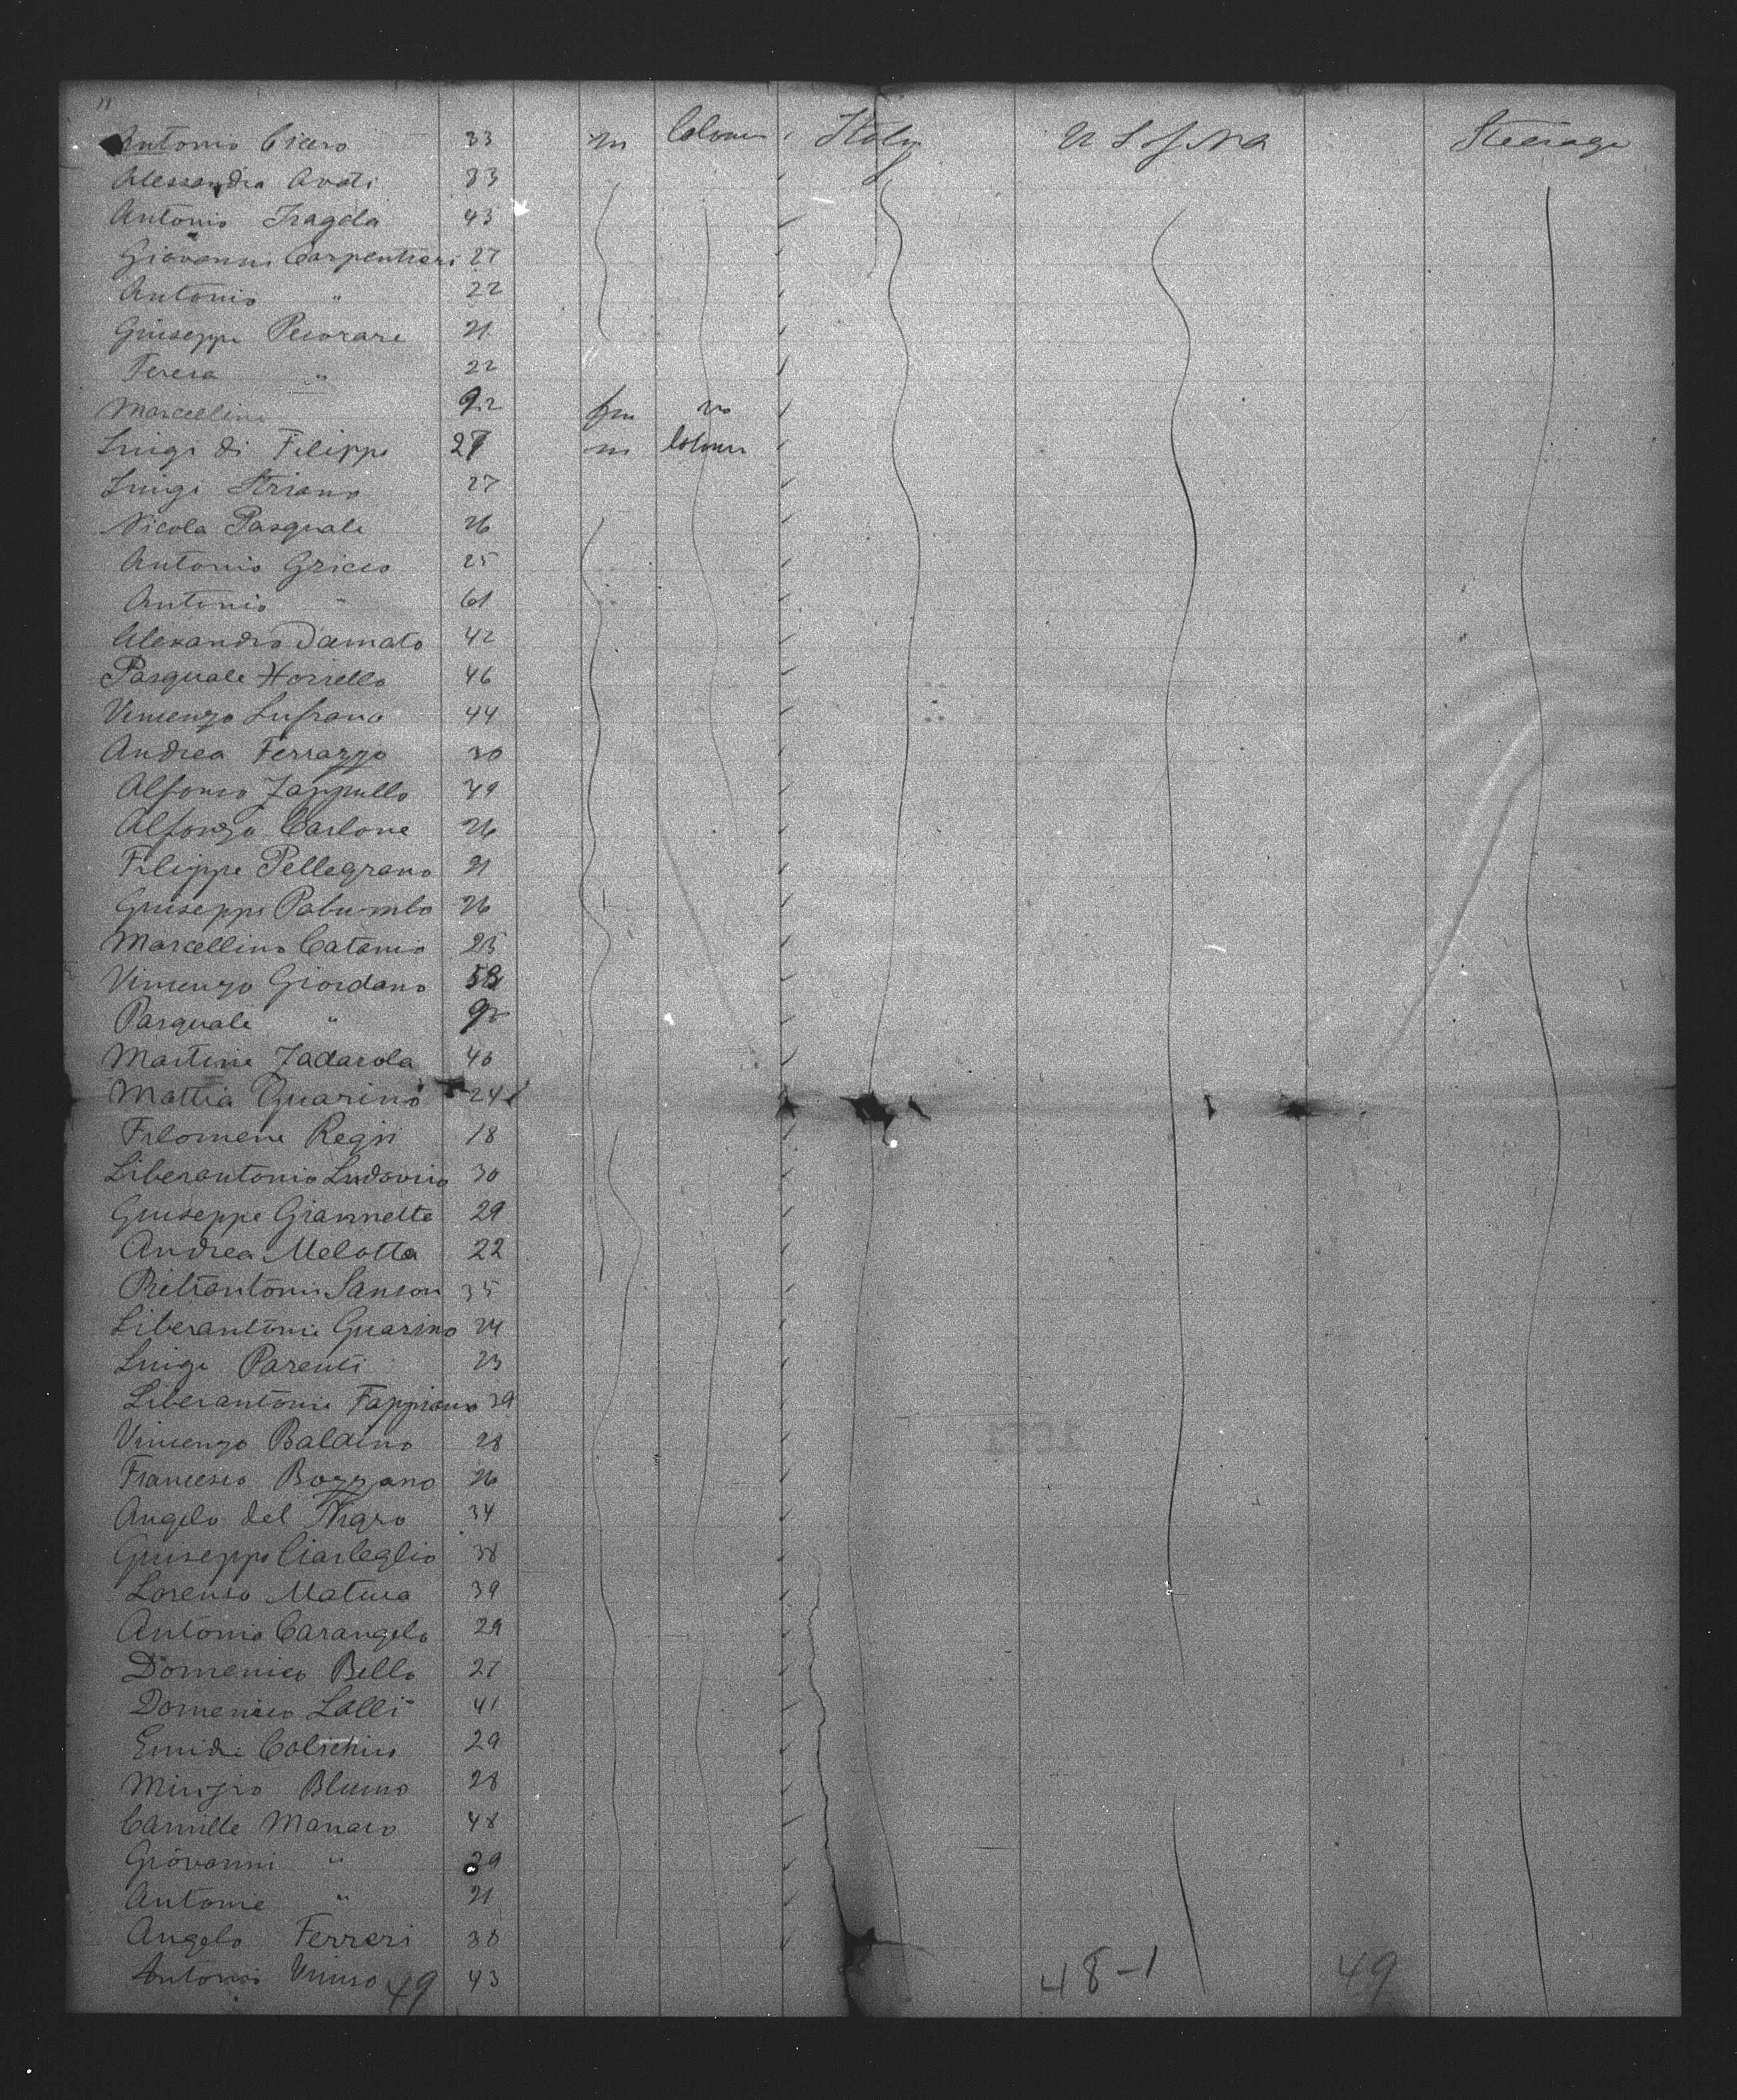 11
Antonio Cicero 33 m Colonus Italy U S of NA Steerage
Alessandra Avati 33
Antonio Fragola 43
Giovanni Carpentieri 27
Antonio " 22
Giuseppe Pecorare 21
Teresa " 22
Marcelline fm no
Luigi di Filippo 27 m Colonus
Luigi Striano 27
Nicola Pasquale 26
Antonio Grieco 25
Antonio " 61
Alexandro Damato 42
Pasquale Horiello 46
Vincenzo Lufrano 44
Andrea Ferrazzo 30
Alfonso Zappullo 39
Alfonzo Carlone 26
Filippo Pellegrano 21
Giuseppe Palumbo 26
Marcellino Catanio 25
Vincenzo Giordano
Pasquale "
Martine Zadarola 40
Mattia Guarino 24
Filomene Regii 18
Liberantonio Ludovico 30
Giuseppe Giannette 29
Andrea Melotta 22
Pietrantoni Sanson 35
Liberantonio Guarino 24
Luigi Parenti 23
Liberantonie Fappiano 39
Vincenzo Baldino 28
Francesco Bozzano 26
Angelo del Nigro 34
Giuseppe Ciarleglio 38
Lorenso Matura 39
Antonio Carangelo 29
Domenico Bello 27
Domenico Lalli 41
Emidi 29
Blumo 28
Camille Manaco 48
Giovanni " 29
Antonie " 21
Angelo Ferreri 38
Antonio 49 43 48-1 49